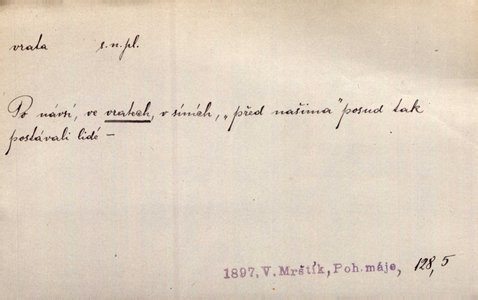 vrata s.n.pl.
Po návsi, ve vratech, v síních, „před našima" posud tak
postávali lidé —
1897, V. Mrštík, Poh. máje, 128,5